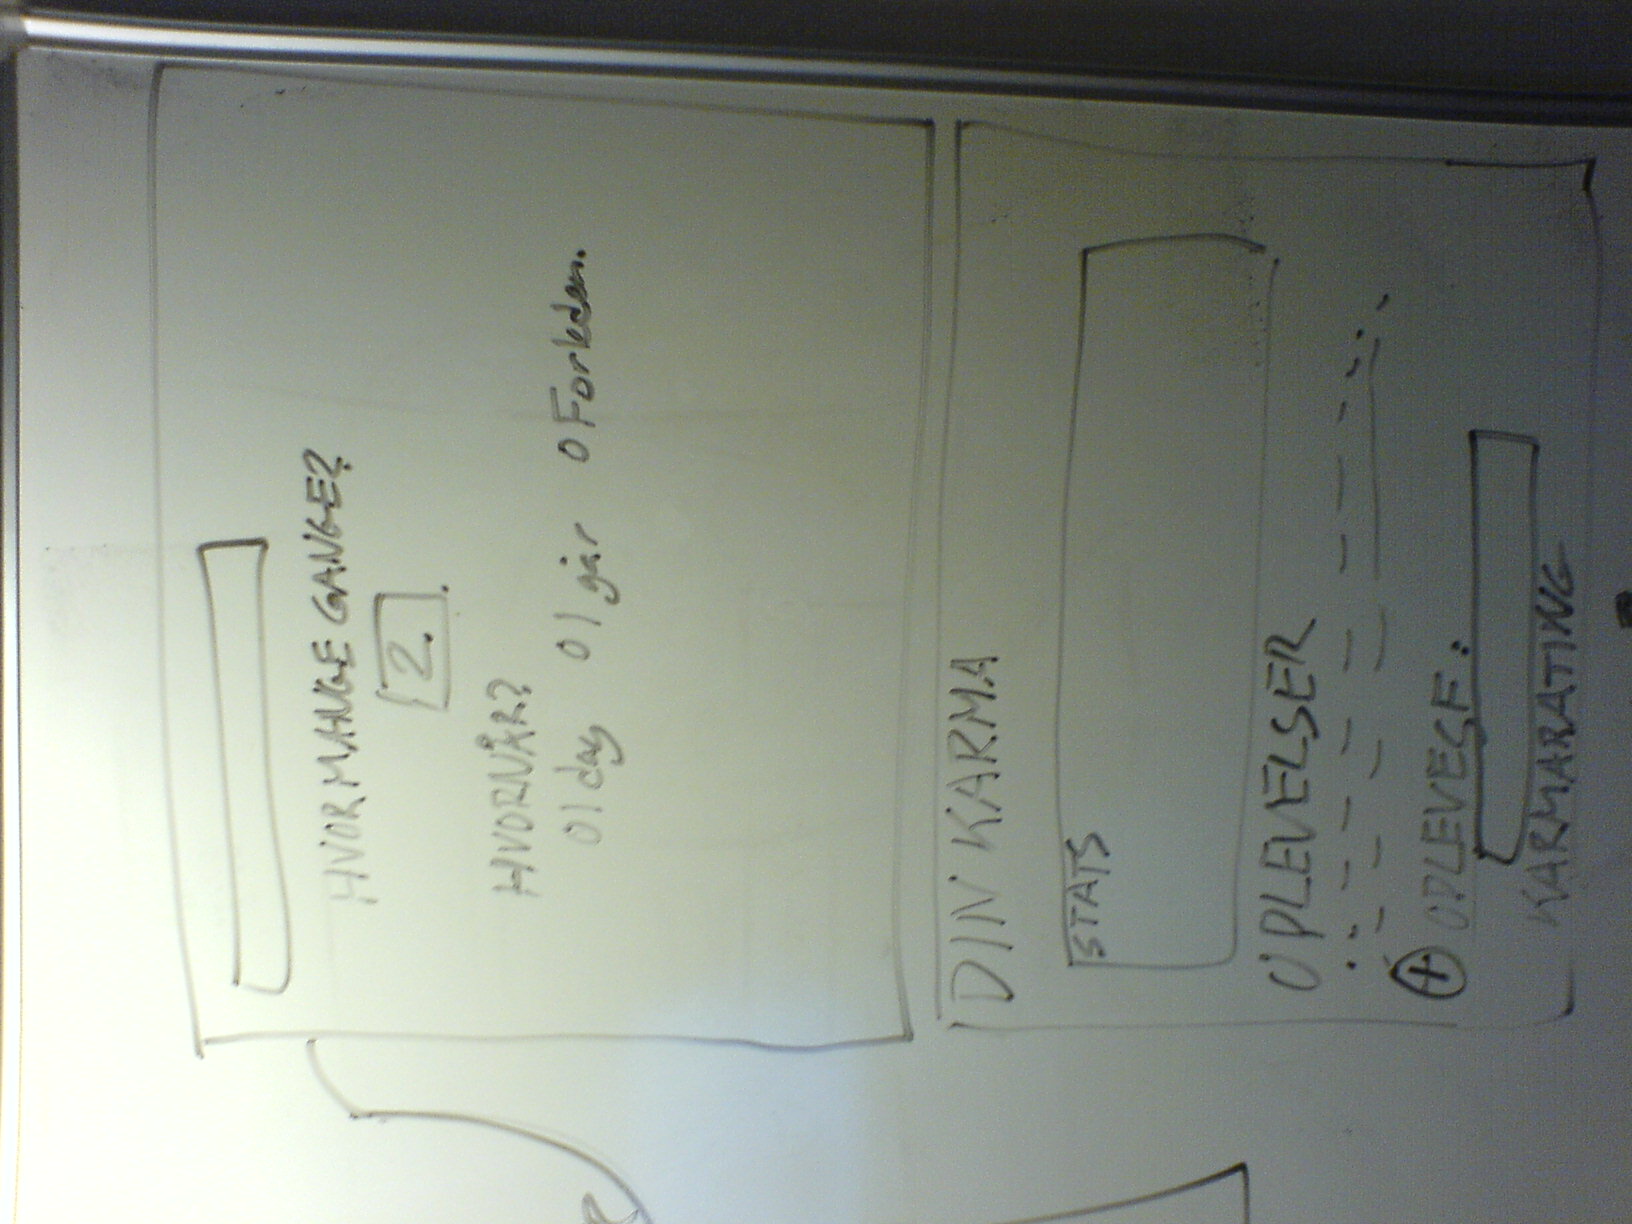 HVOR MANGE GANGE?
2.
HVORNÅR?
O I dag O I går O Forleden.
DIN KARMA
STATS
OPLEVELSER
+ OPLEVELSE:
KARMARATING